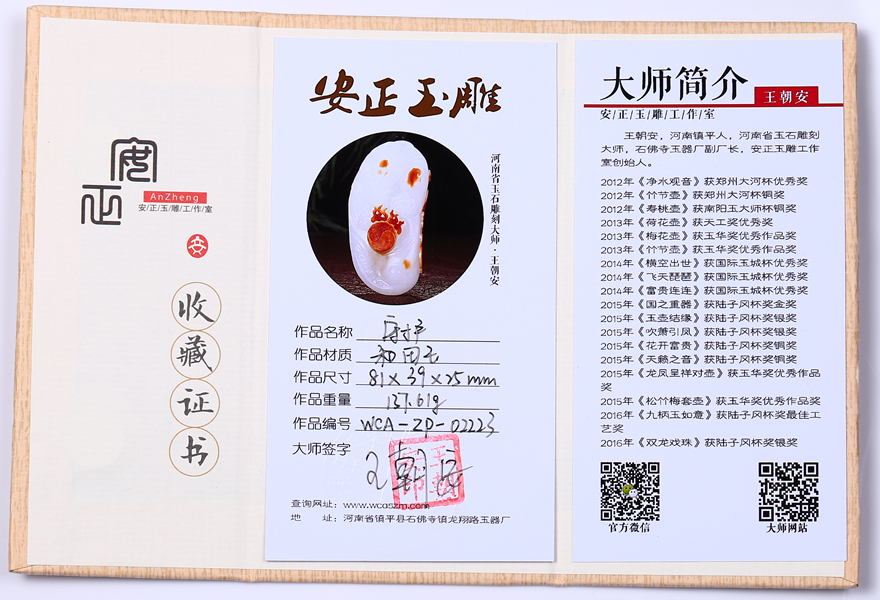 安正
AnZheng
安/正/玉/雕/工/作/室
安
收
藏
证
书
安正玉雕
河南省玉石雕刻大师·王朝安
作品名称
作品材质 和田玉
作品尺寸 81×39×25mm
作品重量 137.61g
作品编号 WCA-ZP-02223
大师签字 王朝安
查询网址：www.wcaszm.com
地 址：河南省镇平县石佛寺镇龙翔路玉器厂
大师简介
王朝安
安/正/玉/雕/工/作/室
王朝安，河南镇平人，河南省玉石雕刻
大师，石佛寺玉器厂副厂长，安正玉雕工作
室创始人。
2012年《净水观音》获郑州大河杯优秀奖
2012年《竹节壶》获郑州大河杯铜奖
2012年《寿桃壶》获南阳玉大师杯铜奖
2013年《荷花壶》获天工奖优秀奖
2013年《梅花壶》获玉华奖优秀作品奖
2013年《竹节壶》获玉华奖优秀作品奖
2014年《横空出世》获国际玉城杯优秀奖
2014年《飞天琵琶》获国际玉城杯优秀奖
2014年《富贵连连》获国际玉城杯优秀奖
2015年《国之重器》获陆子冈杯奖金奖
2015年《玉壶结缘》获陆子冈杯奖银奖
2015年《吹箫引凤》获陆子冈杯奖银奖
2015年《花开富贵》获陆子冈杯奖铜奖
2015年《天籁之音》获陆子冈杯奖铜奖
2015年《龙凤呈祥对壶》获玉华奖优秀作品
奖
2015年《松竹梅套壶》获玉华奖优秀作品奖
2016年《九柄玉如意》获陆子冈杯奖最佳工
艺奖
2016年《双龙戏珠》获陆子冈杯奖银奖
官方微信
大师网站